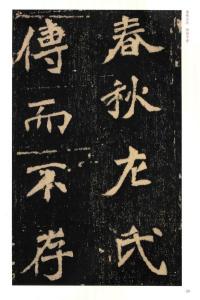 春秋左氏
傳而不存